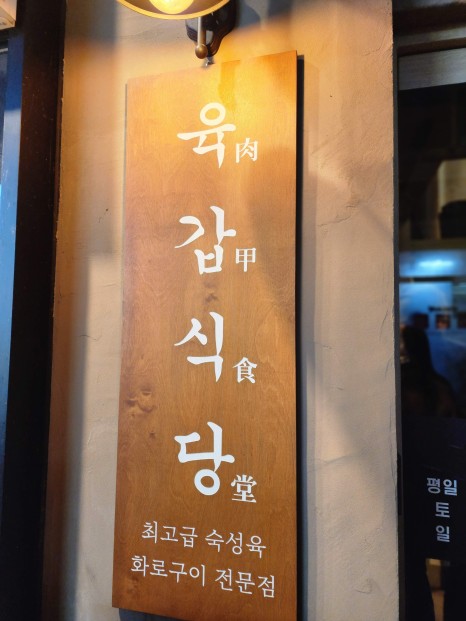 육肉
갑甲
식食
당堂
최고급 숙성육
화로구이 전문점
평일
토
일